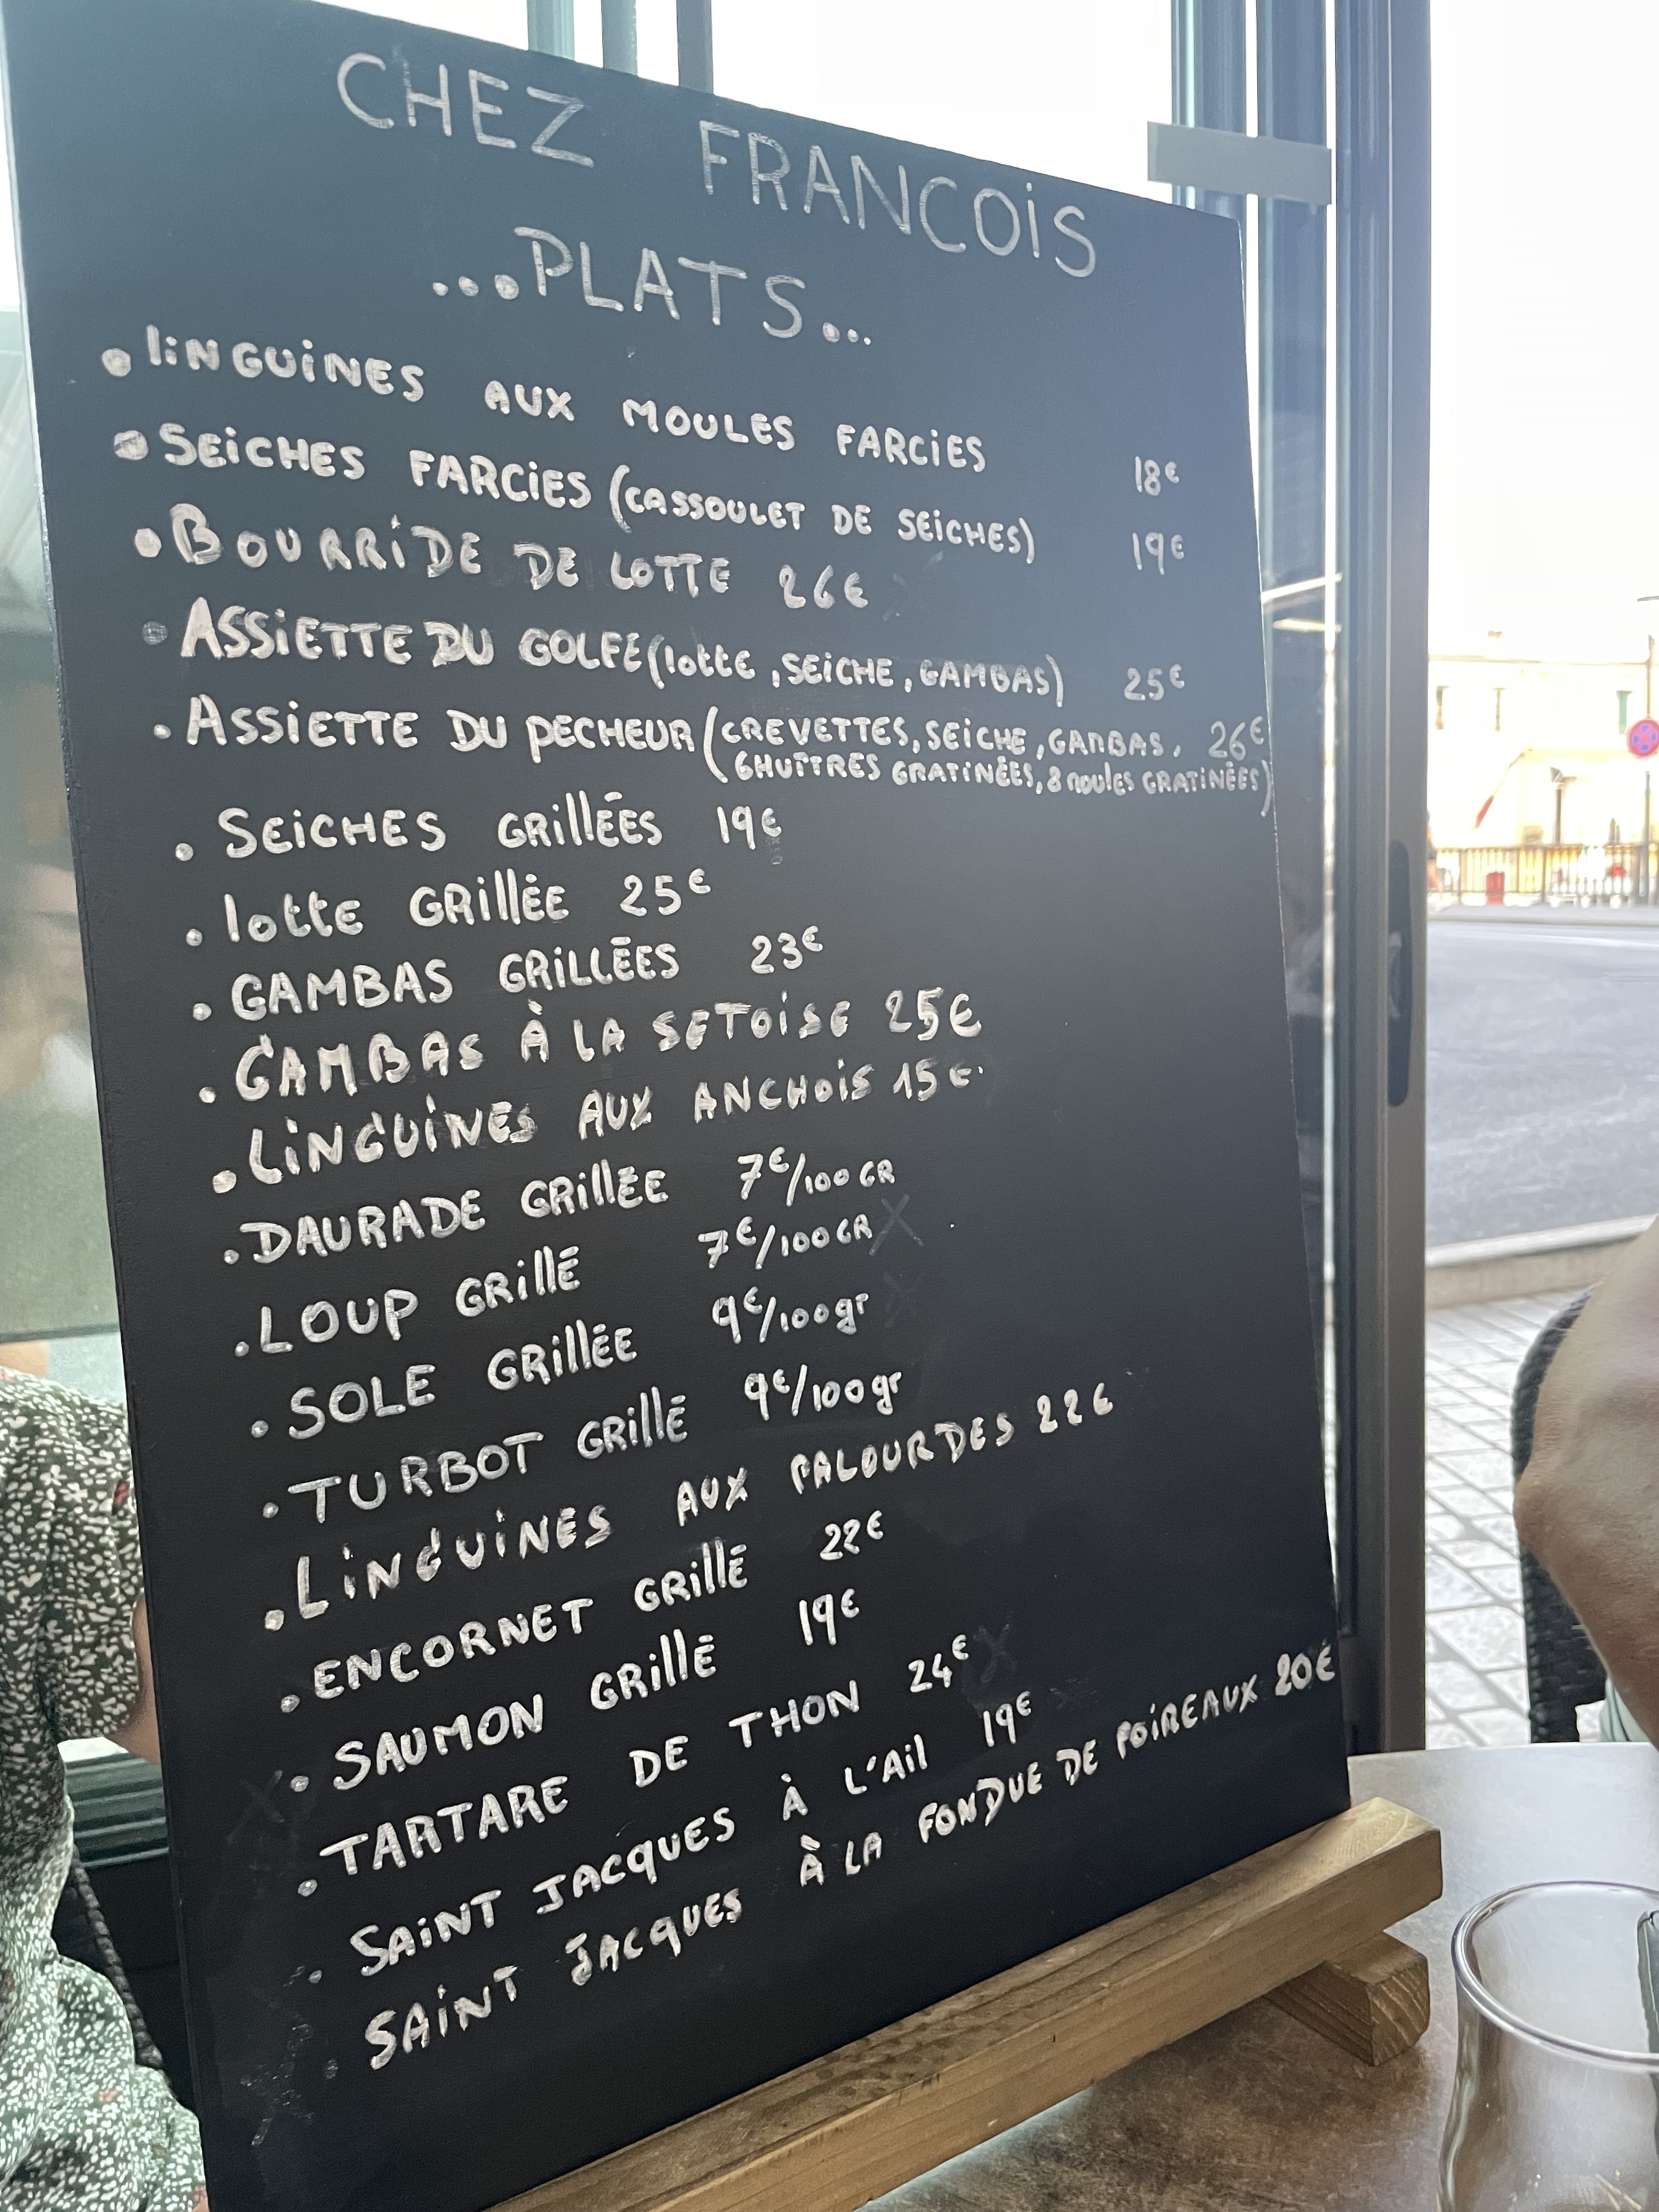 CHEZ FRANCOIS
...PLATS...
• liNGUiNES AUX MOULES FARCiES 18€
• SEiCHES FARCiES (CASSOULET DE SEiCHES) 19€
• BOURRiDE DE LOTTE 26€
• ASSiETTE DU GOLFE (lotte, SEiCHE, GAMBAS) 25€
• ASSiETTE DU PECHEUR (CREVETTES, SEiCHE, GAMBAS, 26€
6 HUITRES GRATiNÉES, 8 moules GRATiNÉES)
• SEiCHES GRilléES 19€
• lotte GRilléE 25€
• GAMBAS GRiLLÉES 23€
• GAMBAS À LA SETOiSE 25€
• LiNGUiNES AUX ANCHOiS 15€
• DAURADE GRilléE 7€/100GR
• LOUP GRillé 7€/100GR
• SOLE GRilléE 9€/100gr
• TURBOT GRillé 9€/100gr
• LiNGUiNES AUX PALOURDES 22€
• ENCORNET GRillé 22€
• SAUMON GRillé 19€
• TARTARE DE THON 24€
• SAiNT JACQUES À L'Ail 19€
• SAiNT JACQUES À LA FONDUE DE POiREAUX 20€